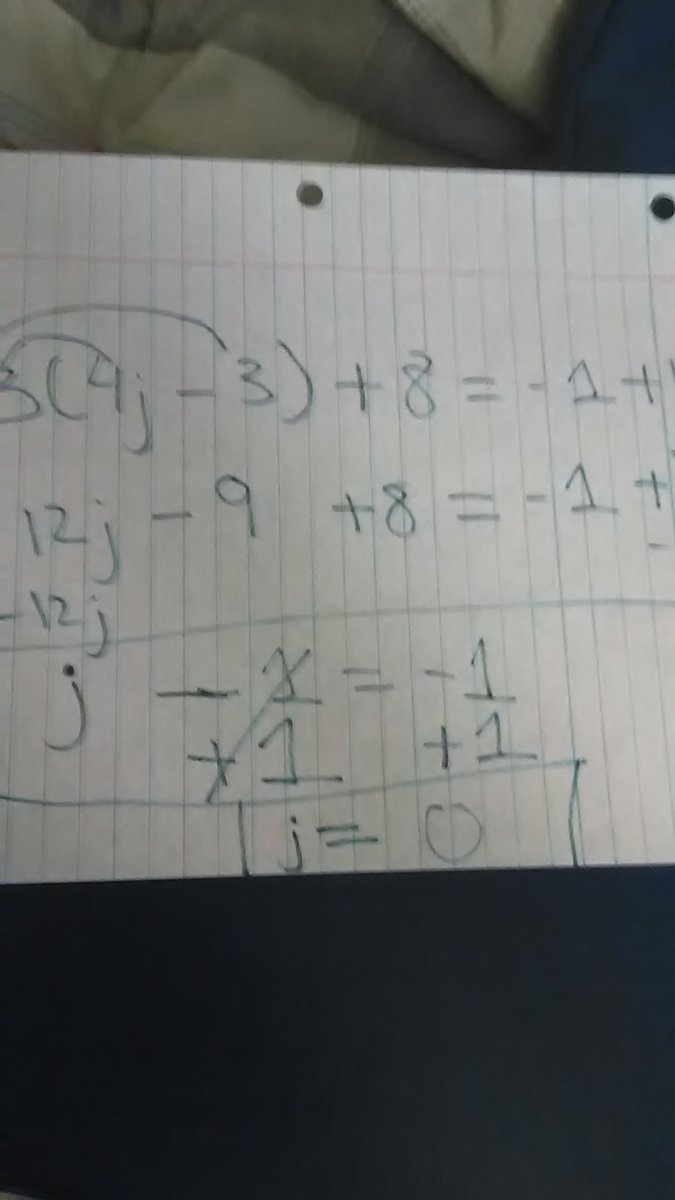 3(4j - 3) + 8 = -1 +
12j - 9 + 8 = -1 +
-12j -
j - 1 = -1
+ 1 + 1
j = 0